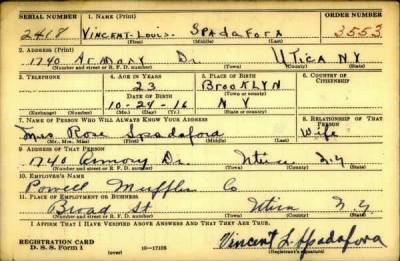 SERIAL NUMBER 1. NAME (Print) ORDER NUMBER
2418 VINCENT-LOUIS- SPADAFORA 3553
(First) (Middle) (Last)
2. ADDRESS (Print)
1740 Armory Dr. UTICA N Y
(Number and street or R. F. D. number) (Town) (County) (State)
3. TELEPHONE 4. AGE IN YEARS 5. PLACE OF BIRTH 6. COUNTRY OF CITIZENSHIP
23 BROOKLYN
DATE OF BIRTH (Town or county)
10-24-16 N Y
(Exchange) (Number) (Mo.) (Day) (Yr.) (State or country)
7. NAME OF PERSON WHO WILL ALWAYS KNOW YOUR ADDRESS 8. RELATIONSHIP OF THAT PERSON
Mrs Rose Spadafora Wife
(Mr., Mrs., Miss) (First) (Middle) (Last)
9. ADDRESS OF THAT PERSON
1740 Armory Dr. Utica N.Y
(Number and street or R. F. D. number) (Town) (County) (State)
10. EMPLOYER'S NAME
Powell Muffler Co
11. PLACE OF EMPLOYMENT OR BUSINESS
Broad St Utica N.Y
(Number and street or R. F. D. number) (Town) (County) (State)
I AFFIRM THAT I HAVE VERIFIED ABOVE ANSWERS AND THAT THEY ARE TRUE.
REGISTRATION CARD
D. S. S. Form 1 (over) 16—17105
Vincent L. Spadafora
(Registrant's signature)